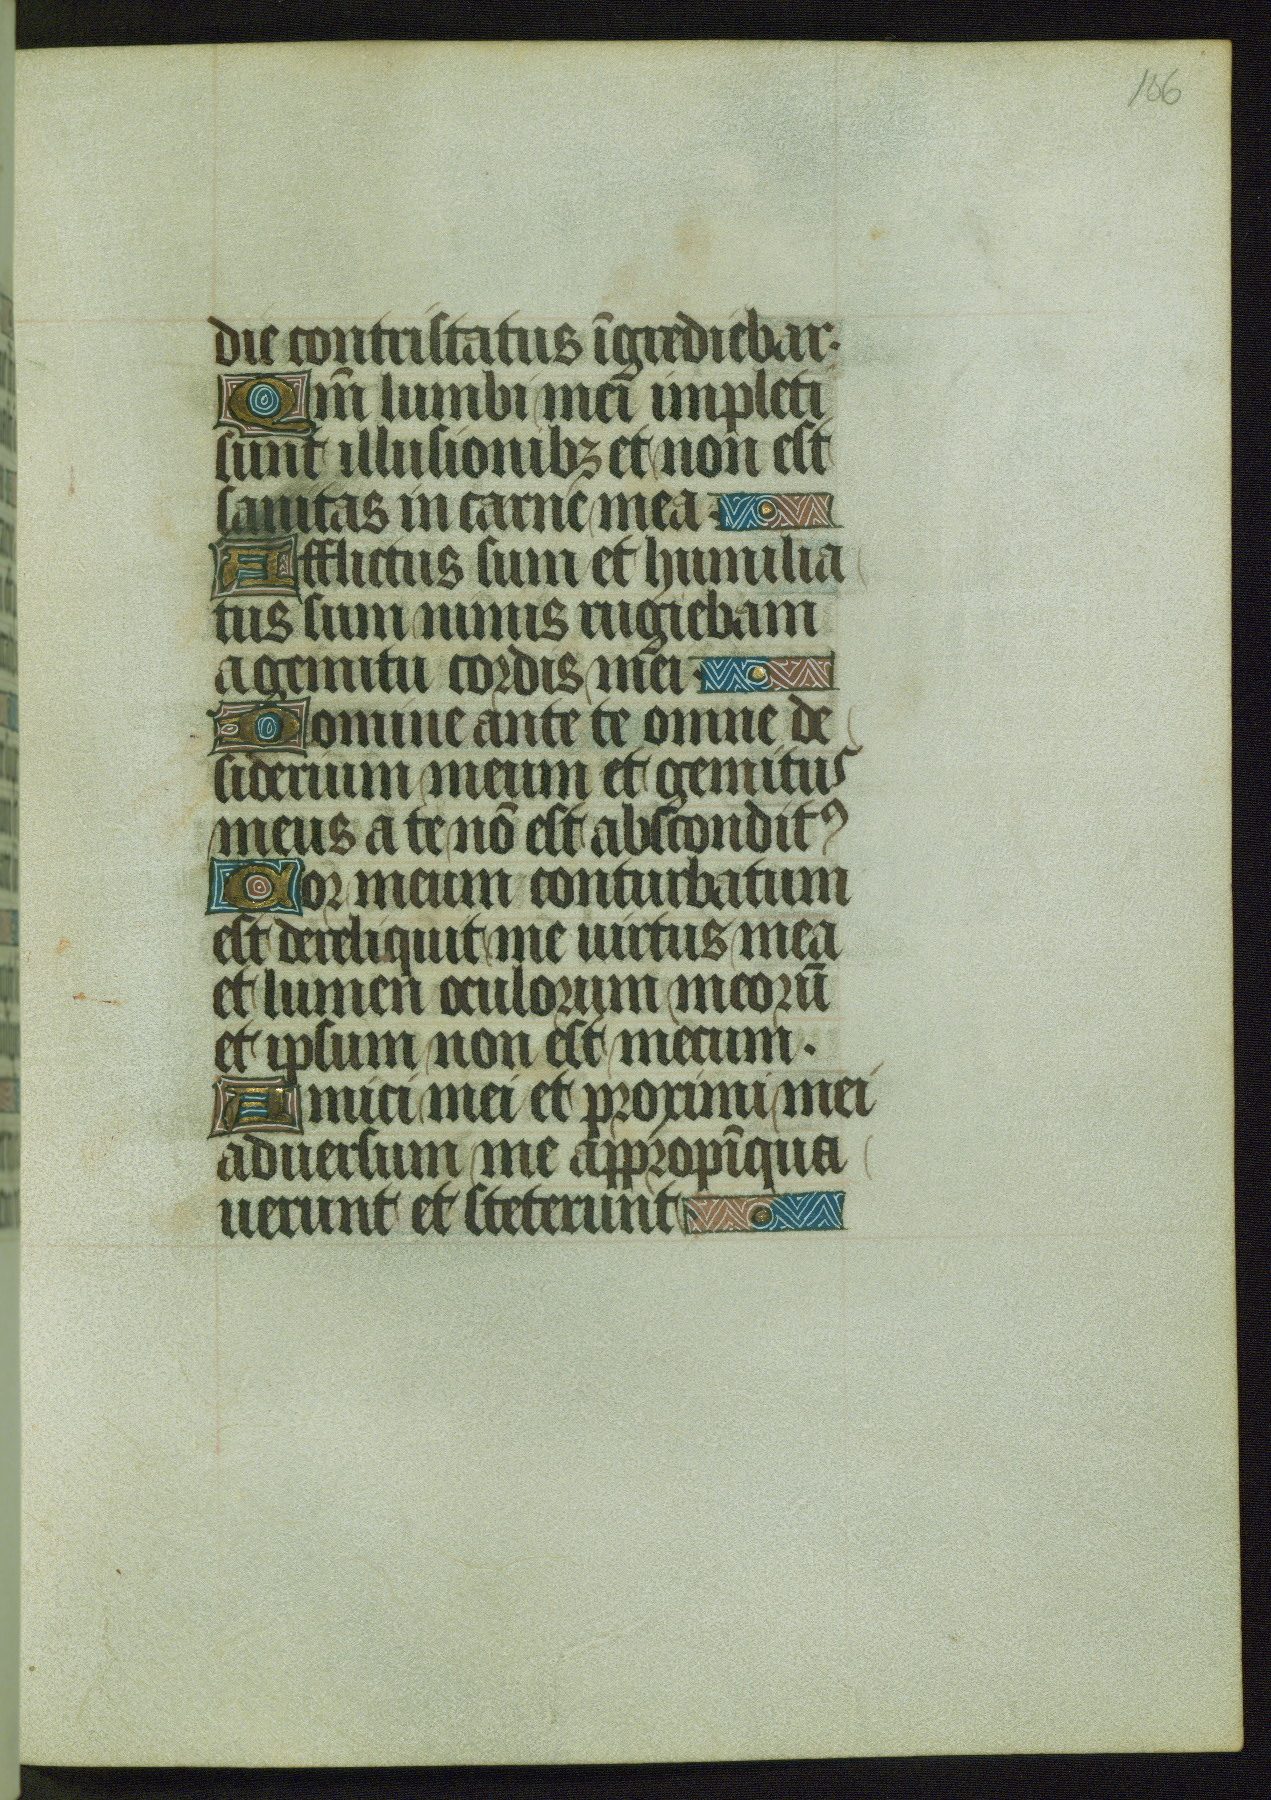 106
die contristatus īgrediebar.
Qm̄ lumbi mei impleti
sunt illusionibꝫ et non est
sanitas in carne mea.
Afflictus sum et humilia
tus sum nimis rugiebam
a gemitu cordis mei.
Domine ante te omne de
siderium meum et gemitus
meus a te nō est absconditꝰ
Cor meum conturbatum
est dereliquit me uirtus mea
et lumen oculorum meorū
et ipsum non est mecum.
Amici mei et proximi mei
aduersum me appropīqua
uerunt et steterunt